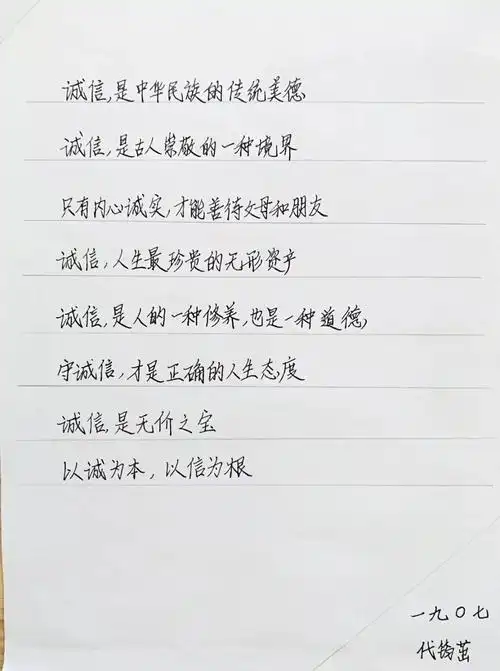 诚信,是中华民族的传统美德
诚信,是古人崇敬的一种境界
只有内心诚实,才能善待父母和朋友
诚信,人生最珍贵的无形资产
诚信,是人的一种修养,也是一种道德,
守诚信,才是正确的人生态度
诚信,是无价之宝
以诚为本,以信为根
一九〇七
代